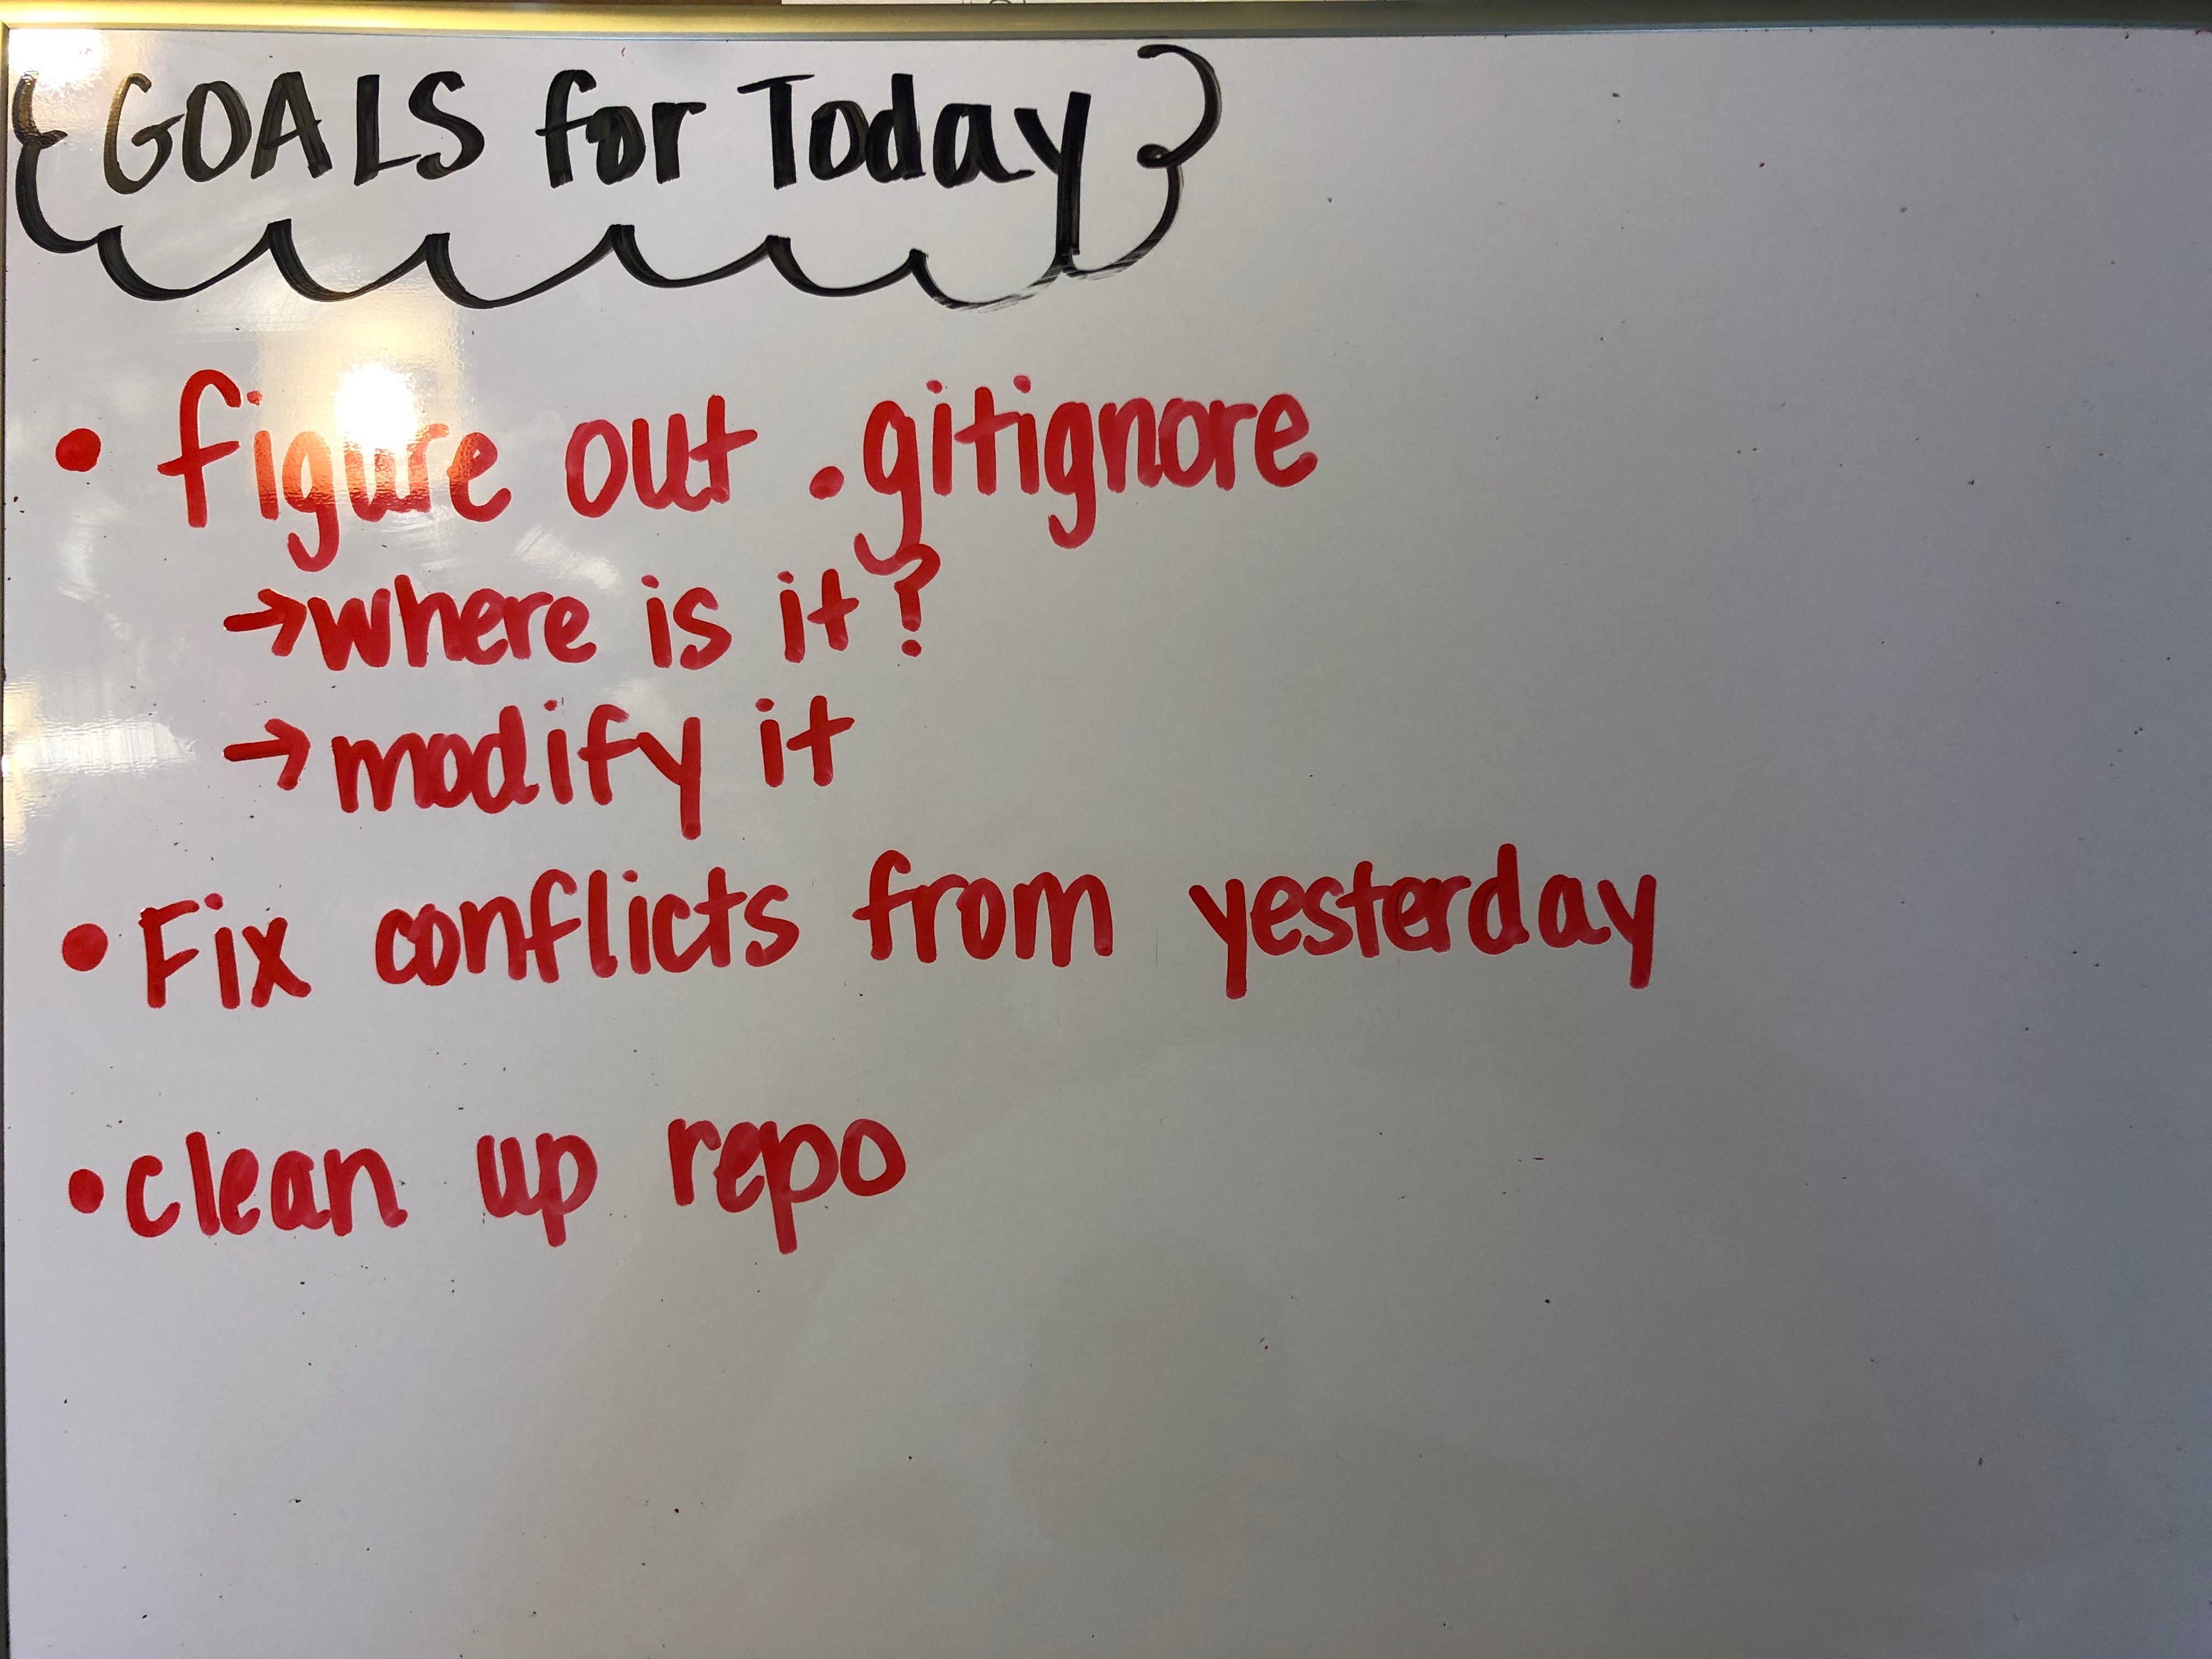 GOALS for Today
• figure out .gitignore
→ where is it?
→ modify it
• Fix conflicts from yesterday
• clean up repo